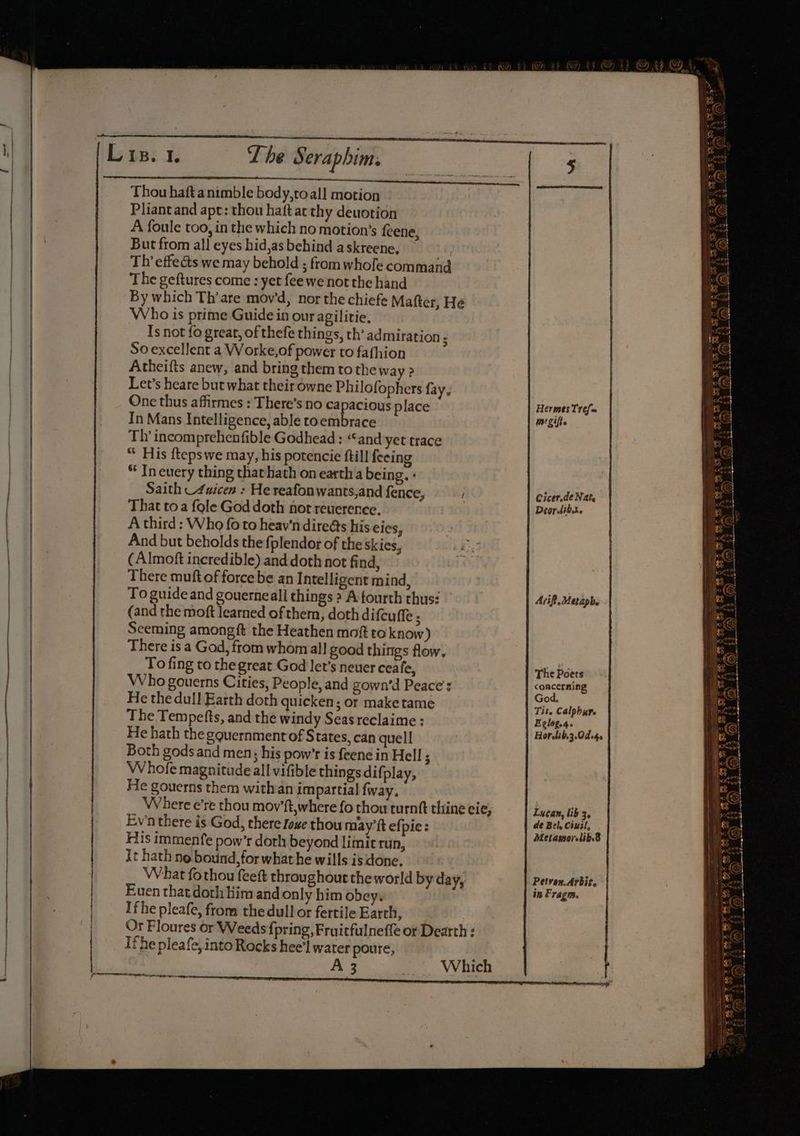 LIB. 1. The Seraphim. 5
Thou haſt a nimble body, to all motion
Pliant and apt: thou haſt at thy deuotion
A ſoule too, in the which no motion's ſeene,
But from all eyes hid, as behind a skreene.
Th' effects we may behold ; from whoſe command
The geſtures come : yet ſee we not the hand
By which Th'are mov'd, nor the chiefe Maſter, He
Who is prime Guide in our agilitie.
Is not ſo great, of theſe things, th' admiration ;
So excellent a VVorke, of power to faſhion
Atheiſts anew, and bring them to the way ?
Let's heare but what their owne Philoſophers ſay.
One thus affirmes : There's no capacious place
In Mans Intelligence, able to embrace
Th' incomprehenſible Godhead : “and yet trace
“ His ſteps we may, his potencie ſtill ſeeing
“ In euery thing that hath on earth a being.
Saith Auicen : He reaſon wants, and ſence,
That to a ſole God doth not reuerence.
A third : VVho ſo to heav'n directs his eies,
And but beholds the ſplendor of the skies,
(Almoſt incredible) and doth not find,
There muſt of force be an Intelligent mind,
To guide and gouerne all things ? A fourth thus:
(and the moſt learned of them, doth diſcuſſe ;
Seeming amongſt the Heathen moſt to know)
There is a God, from whom all good things flow.
To ſing to the great God let's neuer ceaſe,
VVho gouerns Cities, People, and gown'd Peace :
He the dull Earth doth quicken ; or make tame
The Tempeſts, and the windy Seas reclaime :
He hath the gouernment of States, can quell
Both gods and men ; his pow'r is ſeene in Hell ;
VVhoſe magnitude all viſible things diſplay,
He gouerns them with an impartial ſway.
VVhere e're thou mov'ſt, where ſo thou turnſt thine eie,
Ev'n there is God, there Iove thou may'ſt eſpie :
His immenſe pow'r doth beyond limit run,
It hath no bound, for what he wills is done.
VVhat ſo thou ſeeſt throughout the world by day,
Euen that doth him and only him obey.
If he pleaſe, from the dull or fertile Earth,
Or Floures or VVeeds ſpring, Fruitfulneſſe or Dearth :
If he pleaſe, into Rocks hee'l water poure,
A 3 VVhich
Hermes Treſ-
megiſt.
Cicer. de Nat.
Deor. lib. 2.
Ariſt. Metaph.
The Poets
concerning
God.
Tit. Calphur.
Eglog. 4.
Hor. lib. 3. Od. 4.
Lucan, lib 3.
de Bel. Ciuil.
Metamor. lib. 8
Petron. Arbit.
in Fragm.